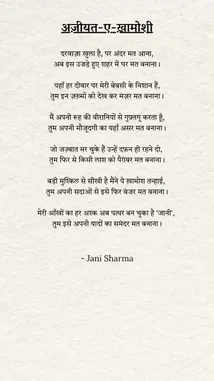 अज़ीयत-ए-ख़ामोशी
दरवाज़ा खुला है, पर अंदर मत आना,
अब इस उजड़े हुए शहर में घर मत बनाना।
यहाँ हर दीवार पर मेरी बेबसी के निशान हैं,
तुम इन ज़ख्मों को देख कर मंज़र मत बनाना।
मैं अपनी रूह की वीरानियों से गुफ़्तगू करता हूँ,
तुम अपनी मौजूदगी का यहाँ असर मत बनाना।
जो जज़्बात मर चुके हैं उन्हें दफ़न ही रहने दो,
तुम फिर से किसी लाश को पैगंबर मत बनाना।
बड़ी मुश्किल से सीखी है मैंने ये ख़ामोश तन्हाई,
तुम अपनी सदाओं से इसे फिर बंजर मत बनाना।
मेरी आँखों का हर अश्क अब पत्थर बन चुका है 'जानी',
तुम इसे अपनी यादों का समंदर मत बनाना।
- Jani Sharma